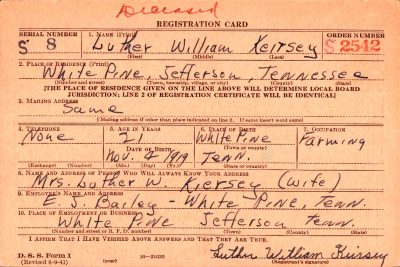 Deceased
REGISTRATION CARD
SERIAL NUMBER 1. NAME (Print) ORDER NUMBER
S 8 Luther William Keirsey S 2542
(First) (Middle) (Last)
2. PLACE OF RESIDENCE (Print)
White Pine, Jefferson, Tennessee
(Number and street) (Town, township, village, or city) (County) (State)
[THE PLACE OF RESIDENCE GIVEN ON THE LINE ABOVE WILL DETERMINE LOCAL BOARD
JURISDICTION; LINE 2 OF REGISTRATION CERTIFICATE WILL BE IDENTICAL]
3. MAILING ADDRESS
Same
[Mailing address if other than place indicated on line 2. If same insert word same]
4. TELEPHONE 5. AGE IN YEARS 6. PLACE OF BIRTH 7. OCCUPATION
None White Pine Farming
DATE OF BIRTH (Town or county)
Nov. 4 1919 Tenn.
(Exchange) (Number) (Mo.) (Day) (Yr.) (State or country)
8. NAME AND ADDRESS OF PERSON WHO WILL ALWAYS KNOW YOUR ADDRESS
Mrs. Luther W. Kiersey (wife)
9. EMPLOYER'S NAME AND ADDRESS
E. J. Bailey - White Pine, Tenn.
10. PLACE OF EMPLOYMENT OR BUSINESS
White Pine Jefferson Tenn.
(Number and street or R. F. D. number) (Town) (County) (State)
I AFFIRM THAT I HAVE VERIFIED ABOVE ANSWERS AND THAT THEY ARE TRUE.
D. S. S. Form 1
(Revised 6-9-41) 16-21630 Luther William Keirsey
(Registrant's signature)